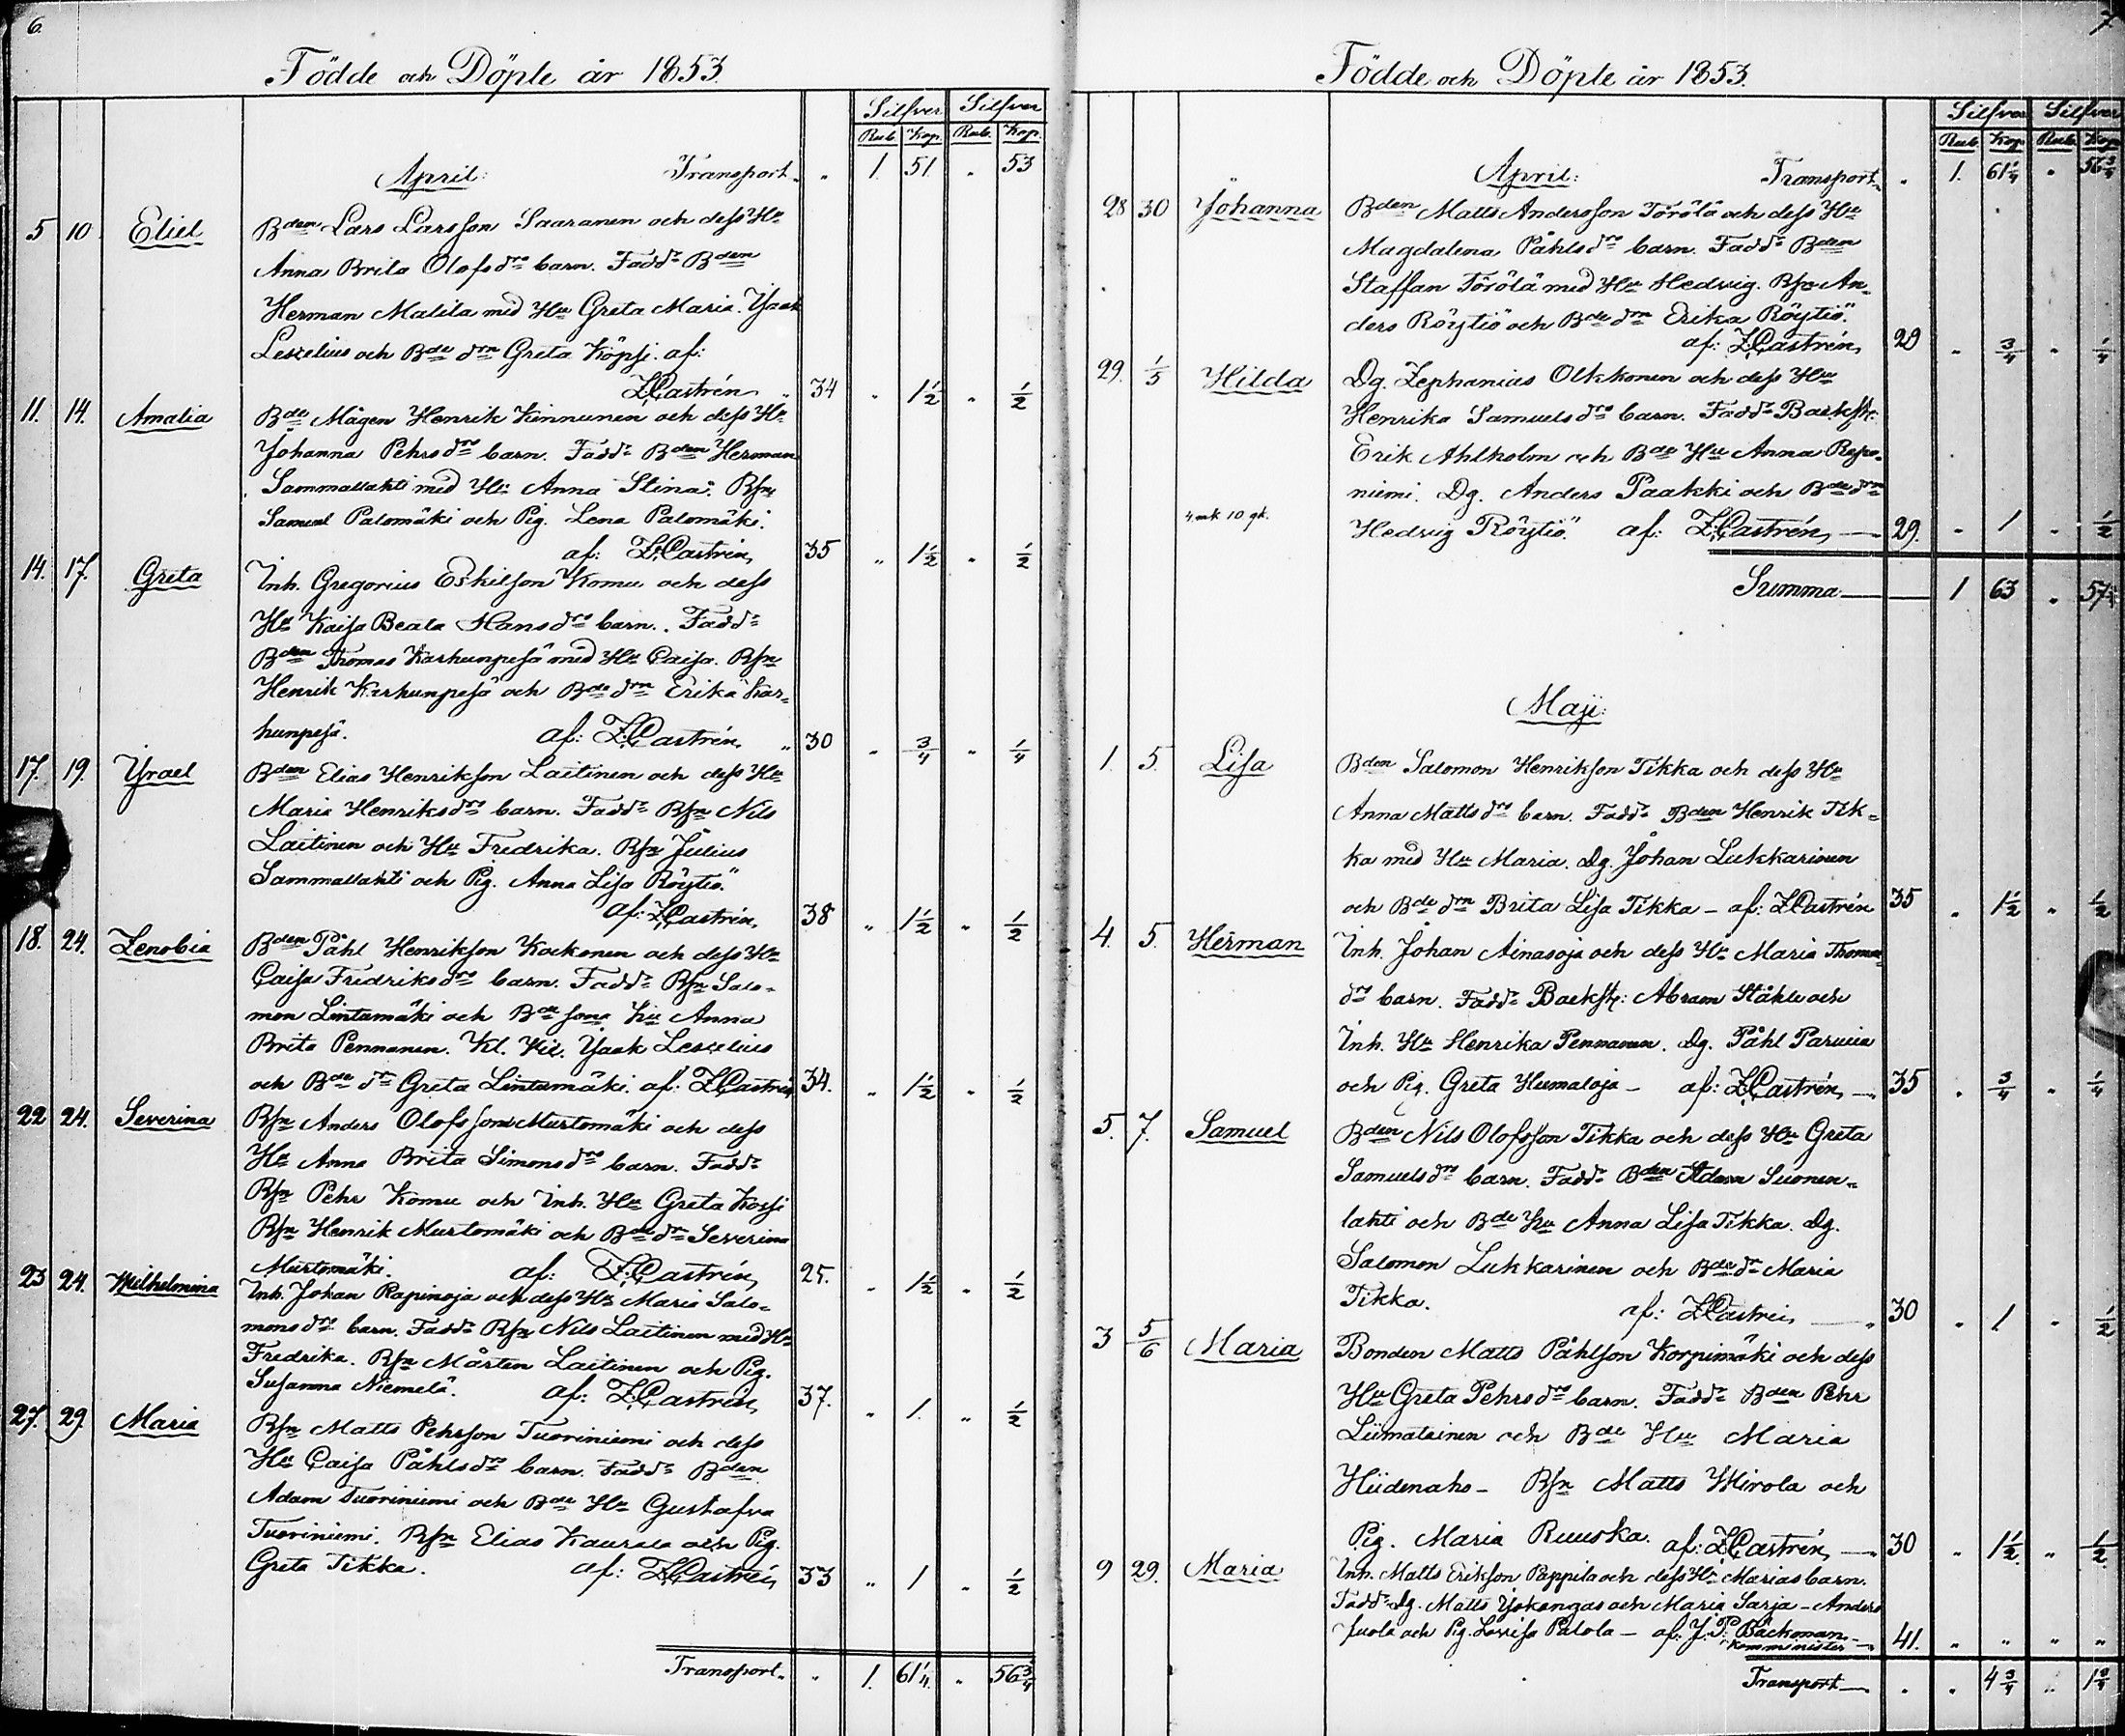 6.
Födde och Döpte år 1853.
Silfver Silfver
Rub. Kop. Rub. Kop.
April: Transport „ „ 1. 51. „ 53
5 10 Eliel Bden Lars Larsson Saaranen och dess Hu
Anna Brita Olofsdrs barn. Faddr Bden
Herman Malila med Hu Greta Maria. Isaak
Lescelius och Bde drn Greta Köpsi. af:
Z.Castrén „ 34 „ 1½ „ ½
11. 14. Amalia Bde Mågen Henrik Kinnunen och dess Hu
Johanna Pehrsdrs barn. Faddr Bden Herman
Sammallahti med Hu Anna Stina. Bsn
Samuel Palomäki och Pig. Lena Palomäki.
af: Z.Castrén, 35 „ 1½ „ ½
14. 17. Greta Inh. Gregorius Eskilson Komu och dess
Hu Kaisa Beata Hansdrs barn. Faddr
Bden Thomas Karhunpesä med Hu Caisa. Bsn
Henrik Karhunpesä och Bde drn Erika Kar-
hunpesä. af: Z.Castrén, „ 30 „ ¾ „ ¼
17. 19. Israel Bden Elias Henrikson Laitinen och dess Hu
Maria Henriksdrs barn. Faddr Bsn Nils
Laitinen och Hu Fredrika. Bsn Julius
Sammallahti och Pig. Anna Lisa Röytiö.
af: Z.Castrén, 38 „ 1½ „ ½
18. 24. Zenobia Bden Påhl Henrikson Kackonen och dess Hu
Caisa Fredriksdrs barn. Faddr Bsn Salo-
mon Lintumäki och Bde sons Hu Anna
Brita Pennanen. Kl. Isaak Lescelius
och Bde dr Greta Lintumäki. af: Z.Castrén 34. „ 1½ „ ½
22 24. Severina Bsn Anders Olofsson Murtomäki och dess
Hu Anna Brita Simonsdrs barn. Faddr
Bsn Pehr Komu och Inh. Hu Greta Kossi
Bsn Henrik Murtomäki och Bde dr Severina
Murtomäki. af: Z.Castrén, 25. „ 1½ „ ½
23 24. Wilhelmina Inh. Johan Rapinoja och dess Hu Maria Salo-
monsdrs barn. Faddr Bsn Nils Laitinen med Hu
Fredrika. Bsn Mårten Laitinen och Pig.
Susanna Niemelä. af: Z.Castrén, 37. „ 1. „ ½
27. 29. Maria Bsn Matts Pehrsson Tuoriniemi och dess
Hu Caisa Påhlsdrs barn. Faddr Bden
Adam Tuoriniemi och Bde Hu Gustafva
Tuoriniemi. Bsn Elias Kaurala och Pig.
Greta Tikka. af: Z.Castrén, 33 „ 1 „ ½
Transport „ „ 1. 61¼ „ 56¾
7.
Födde och Döpte år 1853.
Silfver Silfver
Rub. Kop. Rub. Kop.
April: Transport „ 1. 61¼ „ 56¾
28 30 Johanna Bden Matts Andersson Törölä och dess Hu
Magdalena Påhlsdrs barn. Faddr Bden
Staffan Törölä med Hu Hedvig. Bsn An-
ders Röytiö och Bde drn Erika Röytiö.
af: Z.Castrén, 20 „ ¾ „ ¼
29. 1/5 Hilda Dg. Zephanias Olkkonen och dess Hu
Henrika Samuelsdrs barn. Faddr Backstr:
Erik Ahlholm och Bde Hu Anna Repo-
niemi. Dg. Anders Paakki och Bde drn
4 mk 10 gk. Hedvig Röytiö. af: Z.Castrén, — 29. „ 1 „ ½
Summa — 1 63 „ 57½
Maji:
1. 5. Lisa Bden Salomon Henrikson Tikka och dess Hu
Anna Mattsdrs barn. Faddr Bden Henrik Tik-
ka med Hu Maria. Dg. Johan Lukkarinen
och Bde drn Brita Lisa Tikka – af: Z.Castrén 35 „ 1½ „ ½
4. 5. Herman Inh. Johan Ainasoja och dess Hu Maria Thomas-
drs barn. Faddr Backstr: Abram Ståhle och
Inh. Hu Henrika Pennanen. Dg. Påhl Parviia
och Pig. Greta Humaloja – af: Z.Castrén, — 35 „ ¾ „ ¼
5. 7. Samuel Bden Nils Olofsson Tikka och dess Hu Greta
Samuelsdrs barn. Faddr Bden Adam Suonen-
lahti och Bde Hu Anna Lisa Tikka. Dg.
Salomon Lukkarinen och Bde dr Maria
Tikka. af: Z.Castrén, — 30 „ 1 „ ½
3 5/6 Maria Bonden Matts Påhlson Korpimäki och dess
Hu Greta Pehrsdrs barn. Faddr Bden Pehr
Liimatainen och Bde Hu Maria
Hiidenaho – Bsn Matts Wirola och
Pig. Maria Ruuska. af: Z.Castrén, — 30 „ 1½ „ ½
9 29. Maria Inh. Matts Erikson Pappila och dess Hu Marias barn.
Faddr Dg. Matts Jokangas och Maria Sarja – Anders
Juola och Pig. Lovisa Palola – af: J.P. Bäckman
Komminister — 41. „ „ „ „
Transport — „ „ 4¾ „ 1¾